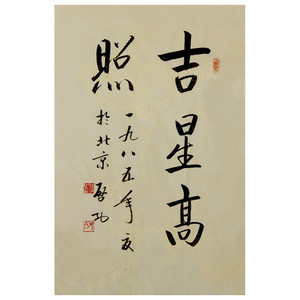 吉星高
照
一九八五年夏
於北京 啓功